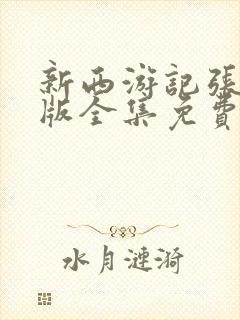 新西游記張
版全集免費
水月漣漪